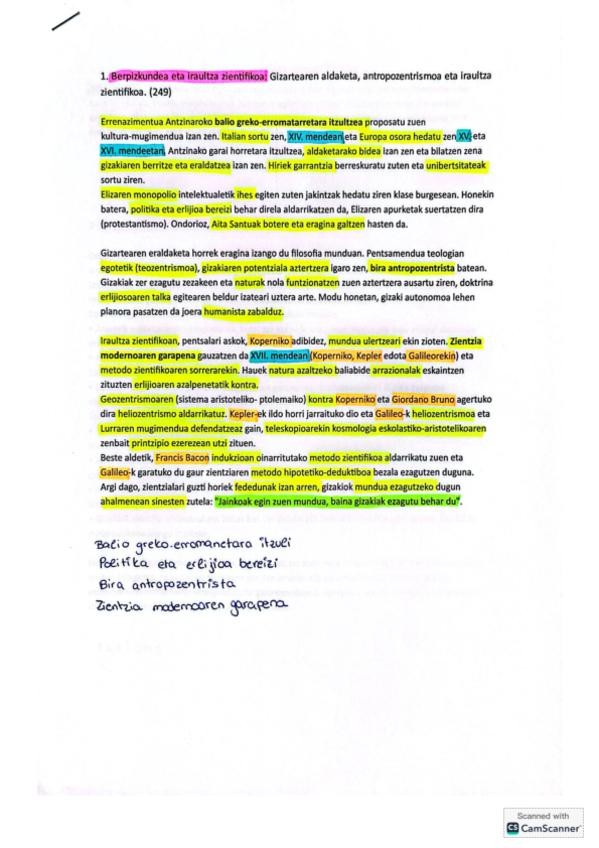 1. Berpizkundea eta Iraultza zientifikoa: Gizartearen aldaketa, antropozentrismoa eta iraultza
zientifikoa. (249)
Errenazimentua Antzinaroko balio greko-erromatarretara itzultzea proposatu zuen
kultura-mugimendua izan zen. Italian sortu zen, XIV. mendean eta Europa osora hedatu zen XV. eta
XVI. mendeetan. Antzinako garai horretara itzultzea, aldaketarako bidea izan zen eta bilatzen zena
gizakiaren berritze eta eraldatzea izan zen. Hiriek garrantzia berreskuratu zuten eta unibertsitateak
sortu ziren.
Elizaren monopolio intelektualetik ihes egiten zuten jakintzak hedatu ziren klase burgesean. Honekin
batera, politika eta erlijioa bereizi behar direla aldarrikatzen da, Elizaren apurketak suertatzen dira
(protestantismo). Ondorioz, Aita Santuak botere eta eragina galtzen hasten da.
Gizartearen eraldaketa horrek eragina izango du filosofia munduan. Pentsamendua teologian
egotetik (teozentrismoa), gizakiaren potentziala aztertzera igaro zen, bira antropozentrista batean.
Gizakiak zer ezagutu zezakeen eta naturak nola funtzionatzen zuen aztertzera ausartu ziren, doktrina
erlijiosoaren talka egitearen beldur izateari uztera arte. Modu honetan, gizaki autonomoa lehen
planora pasatzen da joera humanista zabalduz.
Iraultza zientifikoan, pentsalari askok, Koperniko adibidez, mundua ulertzeari ekin zioten. Zientzia
modernoaren garapena gauzatzen da XVII. mendean (Koperniko, Kepler edota Galileorekin) eta
metodo zientifikoaren sorrerarekin. Hauek natura azaltzeko baliabide arrazionalak eskaintzen
zituzten erlijioaren azalpenetatik kontra.
Geozentrismoaren (sistema aristoteliko- ptolemaiko) kontra Koperniko eta Giordano Bruno agertuko
dira heliozentrismo aldarrikatuz. Kepler-ek ildo horri jarraituko dio eta Galileo-k heliozentrismoa eta
Lurraren mugimendua defendatzeaz gain, teleskopioarekin kosmologia eskolastiko-aristotelikoaren
zenbait printzipio ezerezean utzi zituen.
Beste aldetik, Francis Bacon indukzioan oinarritutako metodo zientifikoa aldarrikatu zuen eta
Galileo-k garatuko du gaur zientziaren metodo hipotetiko-deduktiboa bezala ezagutzen duguna.
Argi dago, zientzialari guzti horiek fededunak izan arren, gizakiok mundua ezagutzeko dugun
ahalmenean sinesten zutela: "Jainkoak egin zuen mundua, baina gizakiak ezagutu behar du".
Balio greko-erromanetara itzuli
Politika eta erlijioa bereizi
Bira antropozentrista
Zientzia modernoaren garapena
Scanned with
CS CamScanner